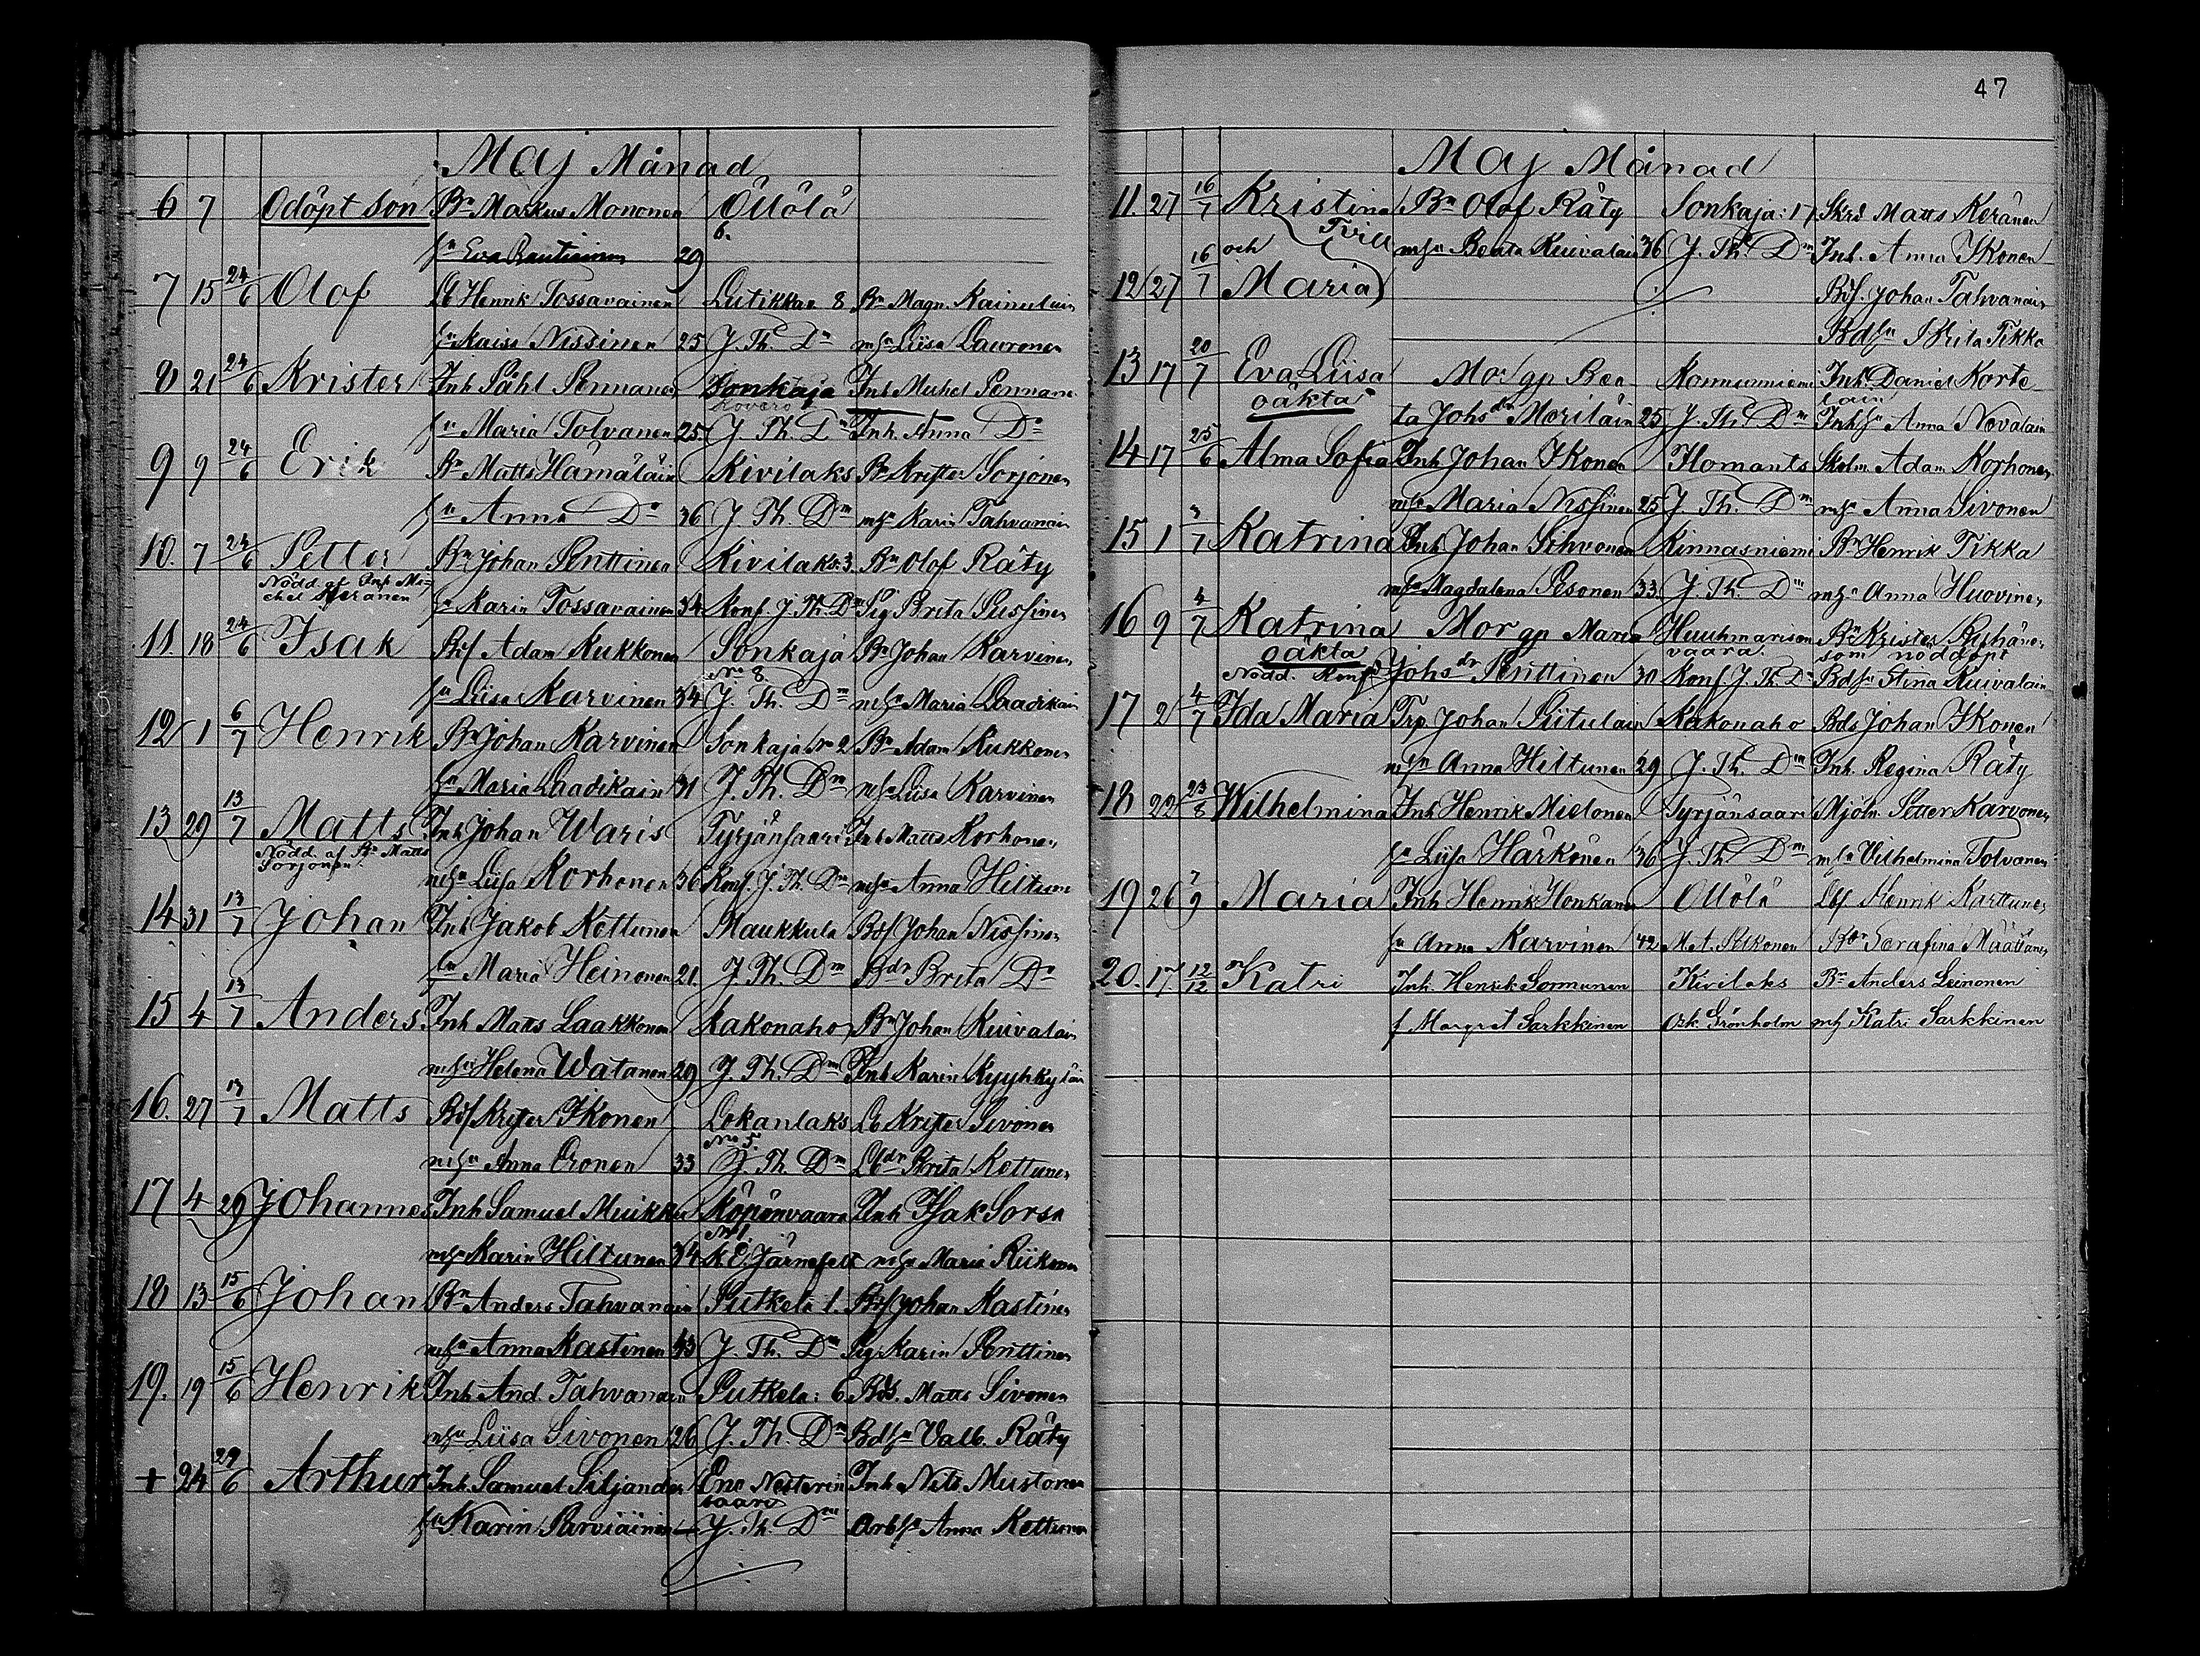 Maj Månad
6 7 Odöpt son Bn Markus Mononen Öllölä
6.
fru Eva Rautiainen 29
7 15 24/6 Olof Lb Henrik Tossavainen Lutikkae 8 Bn Magn. Kainulain
fru Kaisa Nissinen 25 J. Th. Dm mhu Liisa Lauronen
8 21 24/6 Krister Inh Påhl Pennanen Sonkaja Inh Michel Pennane
Kovero
fru Maria Tolvanen 25 J. Th. Dm Inh. Anna Do
9 9 24/6 Erik Bn Matts Hämäläin Kivilaks Bn Krister Sorjonen
fru Anna Do 36 J. Th. Dm mhu Karin Tahvanain
10. 7 24/6 Petter Bn Johan Penttinen Kivilaks: 3 Bn Olof Räty
Nödd. af Inh Mi=
chel Keränen
fru Karin Tossavainen 34 Konf. J. Th. Dm Pig Brita Pussinen
11. 18 24/6 Isak Bdf Adam Kukkonen Sonkaja Bn Johan Karvinen
No 8
fru Liisa Karvinen 34 J. Th. Dm mhu Maria Laadikain
12 1 6/7 Henrik Bn Johan Karvinen Sonkaja No 2 Bn Adam Kukkonen
fru Maria Laadikain 31 J. Th. Dm mhu Liisa Karvinen
13 29 13/7 Matts Inh Johan Waris Tyrjänsaari Inh Matts Korhonen
Nödd. af Bn Matts
Sorjonen.
mhu Liisa Korhonen 36 Konf. J. Th. Dm mhu Anna Hiltunen
14 31 13/7 Johan Inh Jakob Kettunen Maukkula Bdf Johan Nissinen
fru Maria Heinonen 21. J. Th. Dm Bdr Brita Do
15 4 13/7 Anders Inh Matts Laakkonen Kakonaho Bn Johan Kuivalain
mhu Helena Watanen 29 J. Th. Dm Inh Karin Kyyhkyläin
16. 27 13/7 Matts Bdf Krister Ikonen Lokanlaks Lb Krister Sivonen
No 5.
mhu Anna Oronen 33 J. Th. Dm Lbdr Brita Kettunen
17 4 29 Johannes Inh Samuel Muikku Köpönvaara Inh Isak Sorsa
No 1
mhu Karin Hiltunen 34 K. E. Järnefelt mhu Maria Riikonen
18 13 15/6 Johan Bn Anders Tahvanain Putkela 1. Bdf Johan Kastinen
mhu Anna Kastinen 43 J. Th. Dm Pig Karin Penttinen
19. 19 15/6 Henrik Inh And. Tahvanain Putkela: 6 Bdf. Matts Sivonen
mhu Liisa Sivonen 26 J. Th. Dm Bdhu Valb. Räty
+ 24 29/6 Arthur Inh Samuel Siljander Eno Nesterin Inh Nils Mustonen
saari
fru Karin Parviäinen — J. Th. Dm Arbhu Anna Kettunen
47
Maj Månad
11. 27 16/7 Kristina Bn Olof Räty Sonkaja: 17 Skrd Matts Keränen
Tvill
och mhu Beata Kuivalain 36 J. Th. Dm Inh. Anna Ikonen
12 27 16/7 Maria Bdf. Johan Tahvanain
Bdhu Brita Tikka
13 17 20/7 Eva Liisa Mor gp Bea Konnunniemi Inh. Daniel Korte
oäkta
lain
ta Johsdr Moriläin 25 J. Th. Dm Inhhu Anna Nevalain
14 17 25/6 Alma Sofia Inh Johan Ikonen Ilomants Skolm Adam Korhonen
mhu Maria Nissinen 25 J. Th. Dm mhu Anna Sivonen
15 1 3/7 Katrina Inh Johan Sihvonen Kinnasniemi Bn Henrik Tikka
mhu Magdalena Pesonen 33. J. Th. Dm mhu Anna Huovinen
16 9 4/7 Katrina Mor gp Maria Huuhmarisen Bn Krister
oäkta
vaara. som nöddöpt
Nödd. Konf Johsdr Penttinen 30 Konf J. Th. Dm Bdhu Stina Kuivalain
17 2 4/7 Ida Maria Trp Johan Piitulain Kakonaho Bds Johan Ikonen
mhu Anna Hiltunen 29 J. Th. Dm Inh. Regina Räty
18 22 23/8 Wilhelmina Inh Henrik Mielonen Tyrjänsaari Mjöln. Petter Karvonen
fru Liisa Härkönen 36 J. Th. Dm mhu Vilhelmina Tolvanen
19 26 7/9 Maria Inh Henrik Honkanen Öllölä Lbf Henrik Karttunen
fru Anna Karvinen 42 M. A. Pelkonen Bdr Serafina Määttänen
20. 17. 12/12 Katri Inh. Henrik Sormunen Kivilaks Bn Anders Leinonen
f Margret Sarkkinen Osk. Grönholm mh Katri Sarkkinen